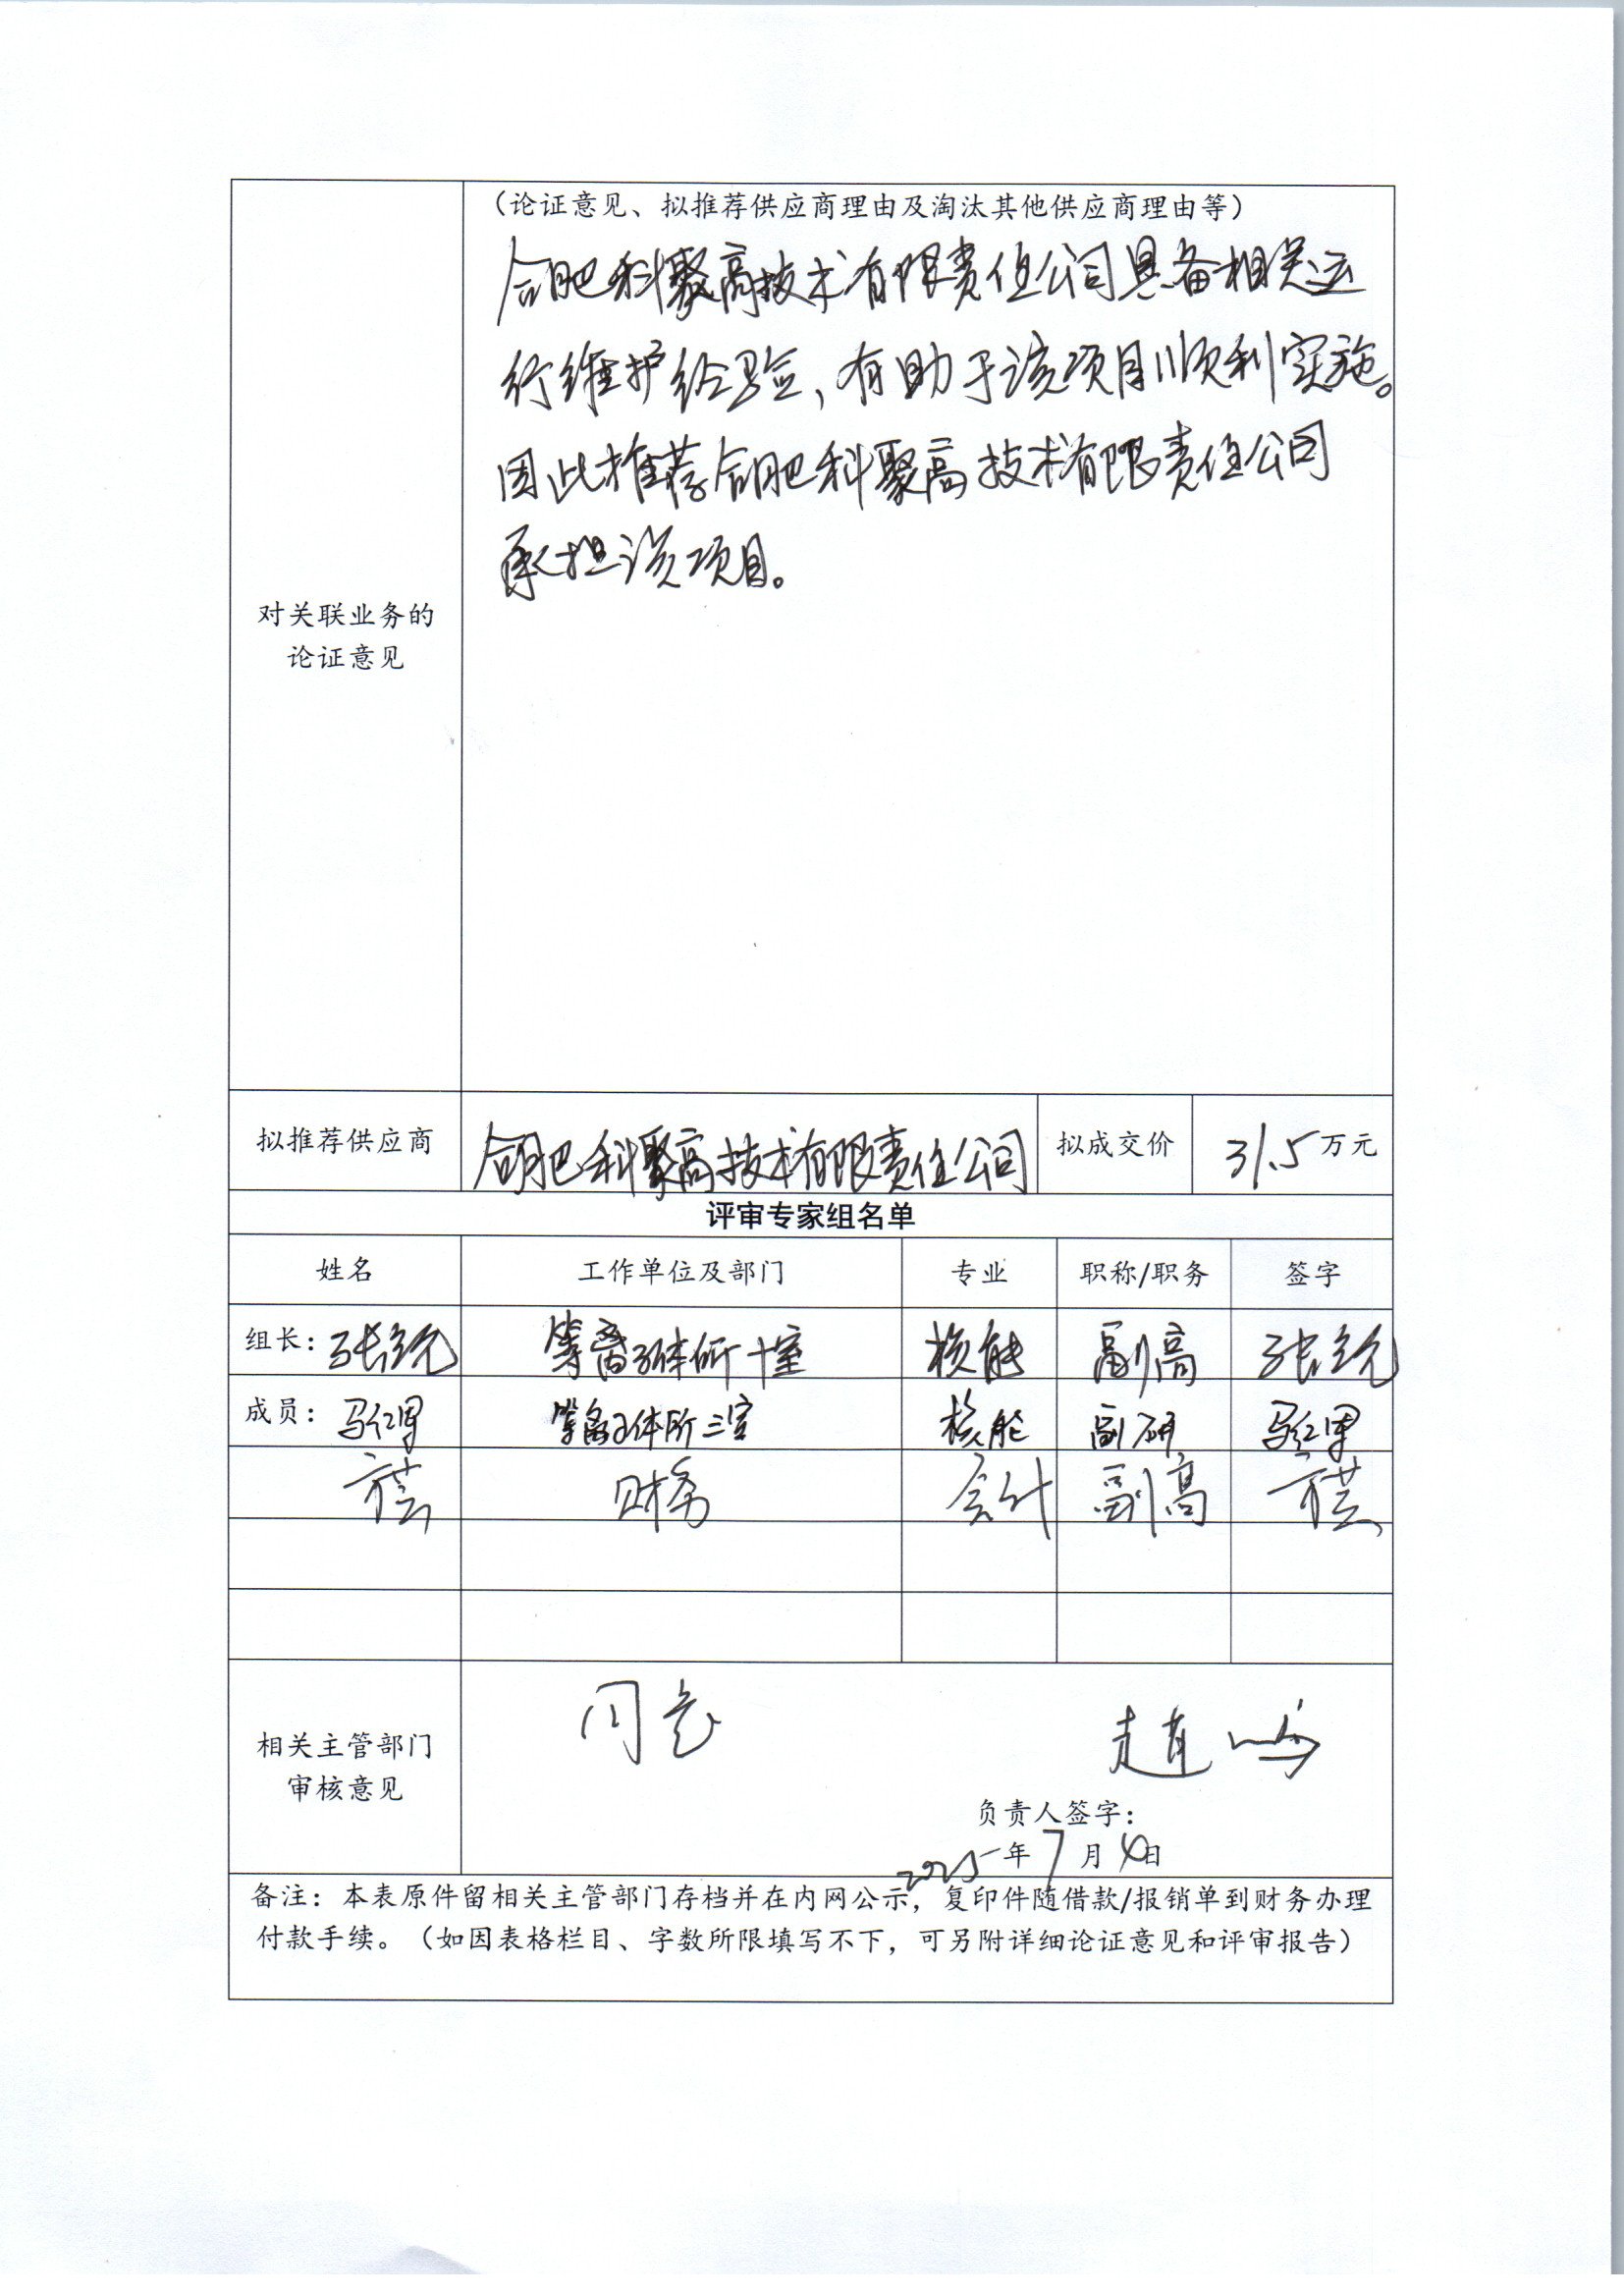 （论证意见、拟推荐供应商理由及淘汰其他供应商理由等）
合肥科聚高技术有限责任公司具备相关运
行维护经验，有助于该项目顺利实施。
因此推荐合肥科聚高技术有限责任公司
承担该项目。
对关联业务的
论证意见
拟推荐供应商 合肥科聚高技术有限责任公司 拟成交价 31.5 万元
评审专家组名单
姓名 工作单位及部门 专业 职称/职务 签字
组长： 等离子体所十室 核能 副高
成员： 等离子体所三室 核能 副研
财务 会计 副高
同意
相关主管部门
审核意见
负责人签字：
2025年7月4日
备注：本表原件留相关主管部门存档并在内网公示，复印件随借款/报销单到财务办理
付款手续。（如因表格栏目、字数所限填写不下，可另附详细论证意见和评审报告）